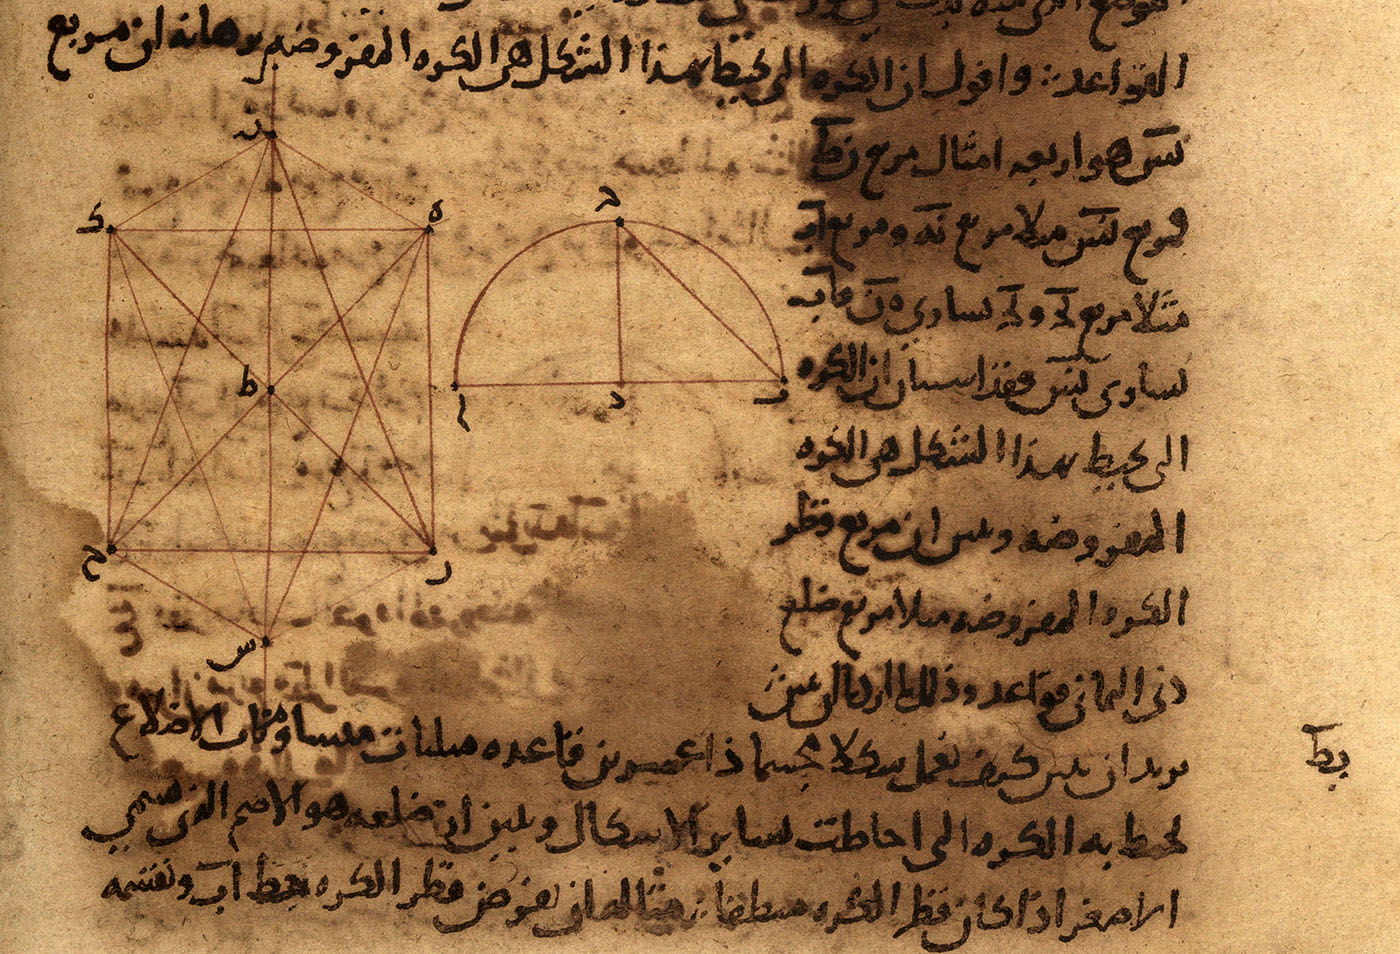 القواعد: واقول ان الكره التي يحيط بهذا الشكل هي الكره المفروضه برهانه ان مربع
نس هو اربعه امثال مربع نط
فمربع نس مثلا مربع نه ومربع اب
مثلا مربع
يساوي نس فقد استبان ان الكره
التي يحيط بهذا الشكل هي الكره
المفروضه ونبين ان مربع قطر
الكره المفروضه مثلا مربع ضلع
ذي الثماني قواعد وذلك ما اردنا ان نبين
نريد ان نبين كيف نعمل شكلا مجسما ذا عشرين قاعده مثلثات متساويات الاضلاع
يط
تحيط به الكره التي احاطت بساير الاشكال ونبين ان ضلعه هو الاصم الذي يسمى
الاصغر اذا كان قطر الكره منطقا: مثاله ان نفرض قطر الكره خط اب ونقسمه
ن
ك
ه
ط
ح
ر
س
ج
ا
د
ب